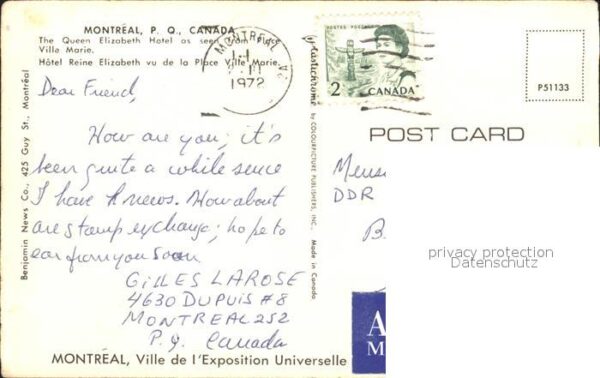 MONTRÉAL, P. Q., CANADA
The Queen Elizabeth Hotel as seen from Place
Ville Marie.
Hôtel Reine Elizabeth vu de la Place Ville Marie.
MONTREAL
1972
POSTES POSTAGE
2 CANADA
P51133
POST CARD
Dear Friend,
How are you; it's
been quite a while sence
I have news. How about
are stamp exchange; hope to
ear from you soon
GILLES LAROSE
4630 DUPUIS #8
MONTREAL 252
P.Q. Canada
Benjamin News Co., 425 Guy St., Montréal
Plastichrome by COLOURPICTURE PUBLISHERS, INC. Made in Canada
DDR
B.
privacy protection
Datenschutz
A
M
MONTRÉAL, Ville de l'Exposition Universelle